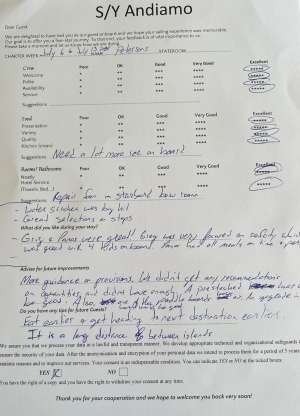 S/Y Andiamo
Dear Guest,
We are delighted to have had you as our guest on board and we hope your sailing experience was memorable.
Our goal is to offer you a first-class journey. To that end, your feedback is of vital importance to us.
Please take a moment and let us know how we are doing.
CHARTER WEEK July 6 Petersons STATEROOM
Crew Poor OK Good Very Good Excellent
Welcome * ** *** **** *****
Polite * ** *** **** *****
Availability * ** *** **** *****
Service * ** *** **** *****
Suggestions
Food Poor OK Good Very Good Excellent
Presentation * ** *** **** *****
Variety * ** *** **** *****
Quality * ** *** **** *****
Kitchen (stores) * ** *** **** *****
Suggestions Need a lot more ice on board
Rooms/Bathrooms Poor OK Good Very Good Excellent
Ready * ** *** **** *****
Hotel Service * ** *** **** *****
(Towels, Bed...) * ** *** **** *****
Suggestions Repair fan in starboard bow room
- Water slide was big hit
- Great selection of stops
What did you like during your stay?
Greg & Panos were great! Greg was very focused on safety which
was great with 4 kids onboard. Panos had all meals on time &
Advice for future improvements
More guidance on provisions. We didn't get any recommendations
on quantities and didn't have enough. A prestocked have
be good. Also, one of the paddle boards the upgrade
Do you have any tips for future Guests?
Eat earlier & get heading to next destination earlier.
It is a long distance between islands
We assure you we process your data in a lawful and transparent manner. We develop appropriate technical and organizational safeguards
ensure the security of your data. After the anonymization and encryption of your personal data we intend to process them for a period of 5 years
reasons and to improve our services. Your consent is an indispensable condition. You can indicate YES or NO at the ticked boxes
YES NO
You have the right of a copy and you have the right to withdraw your consent at any time.
Thank you for your cooperation and we hope to welcome you back very soon!